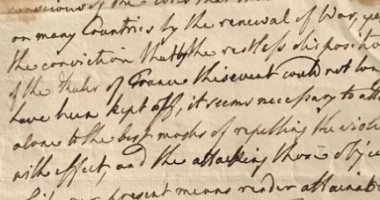 conscious of the evils that
on many Countries by the renewal of War, ye
the conviction that by the restless disposition
of the Ruler of France this event could not lon
have been kept off, it seems necessary to att
alone to the best modes of repelling the viole
with effect, and the attacking those objec
present means render attainab